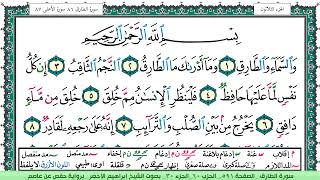 الجزء الثلاثون سورة الطارق ٨٦ سورة الأعلى ٨٧
بِسْمِ اللَّهِ الرَّحْمَٰنِ الرَّحِيمِ
وَالسَّمَاءِ وَالطَّارِقِ ١ وَمَا أَدْرَاكَ مَا الطَّارِقُ ٢ النَّجْمُ الثَّاقِبُ ٣ إِنْ كُلُّ
نَفْسٍ لَمَّا عَلَيْهَا حَافِظٌ ٤ فَلْيَنْظُرِ الْإِنْسَانُ مِمَّ خُلِقَ ٥ خُلِقَ مِنْ مَاءٍ
دَافِقٍ ٦ يَخْرُجُ مِنْ بَيْنِ الصُّلْبِ وَالتَّرَائِبِ ٧ إِنَّهُ عَلَىٰ رَجْعِهِ لَقَادِرٌ ٨
سورة الطارق الصفحة ٥٩١ الحزب ٦٠ بصوت الشيخ إبراهيم الأخضر برواية حفص عن عاصم